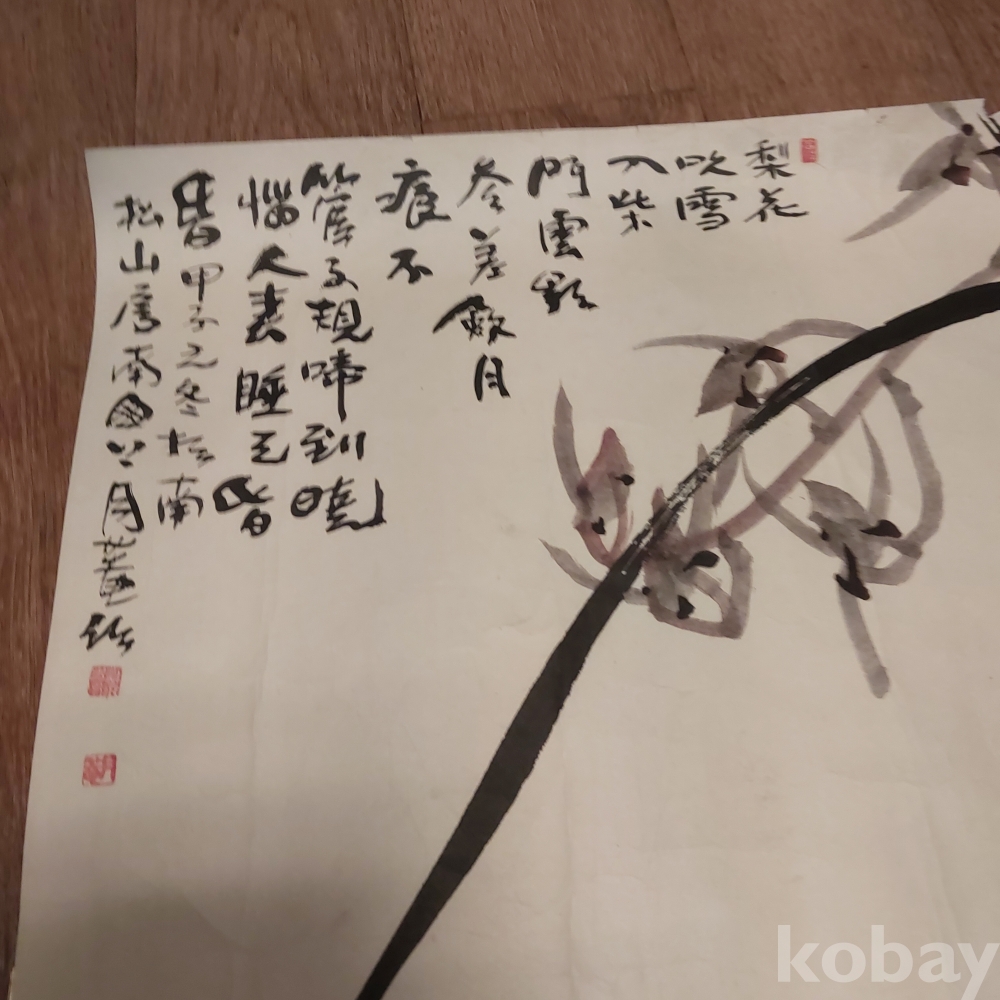 梨花
吹雪
入柴
門雲影
參差斂月
痕不
管子規啼到曉
惱人春睡已昏
昏甲子元冬於南
松山房南園 月
kobay